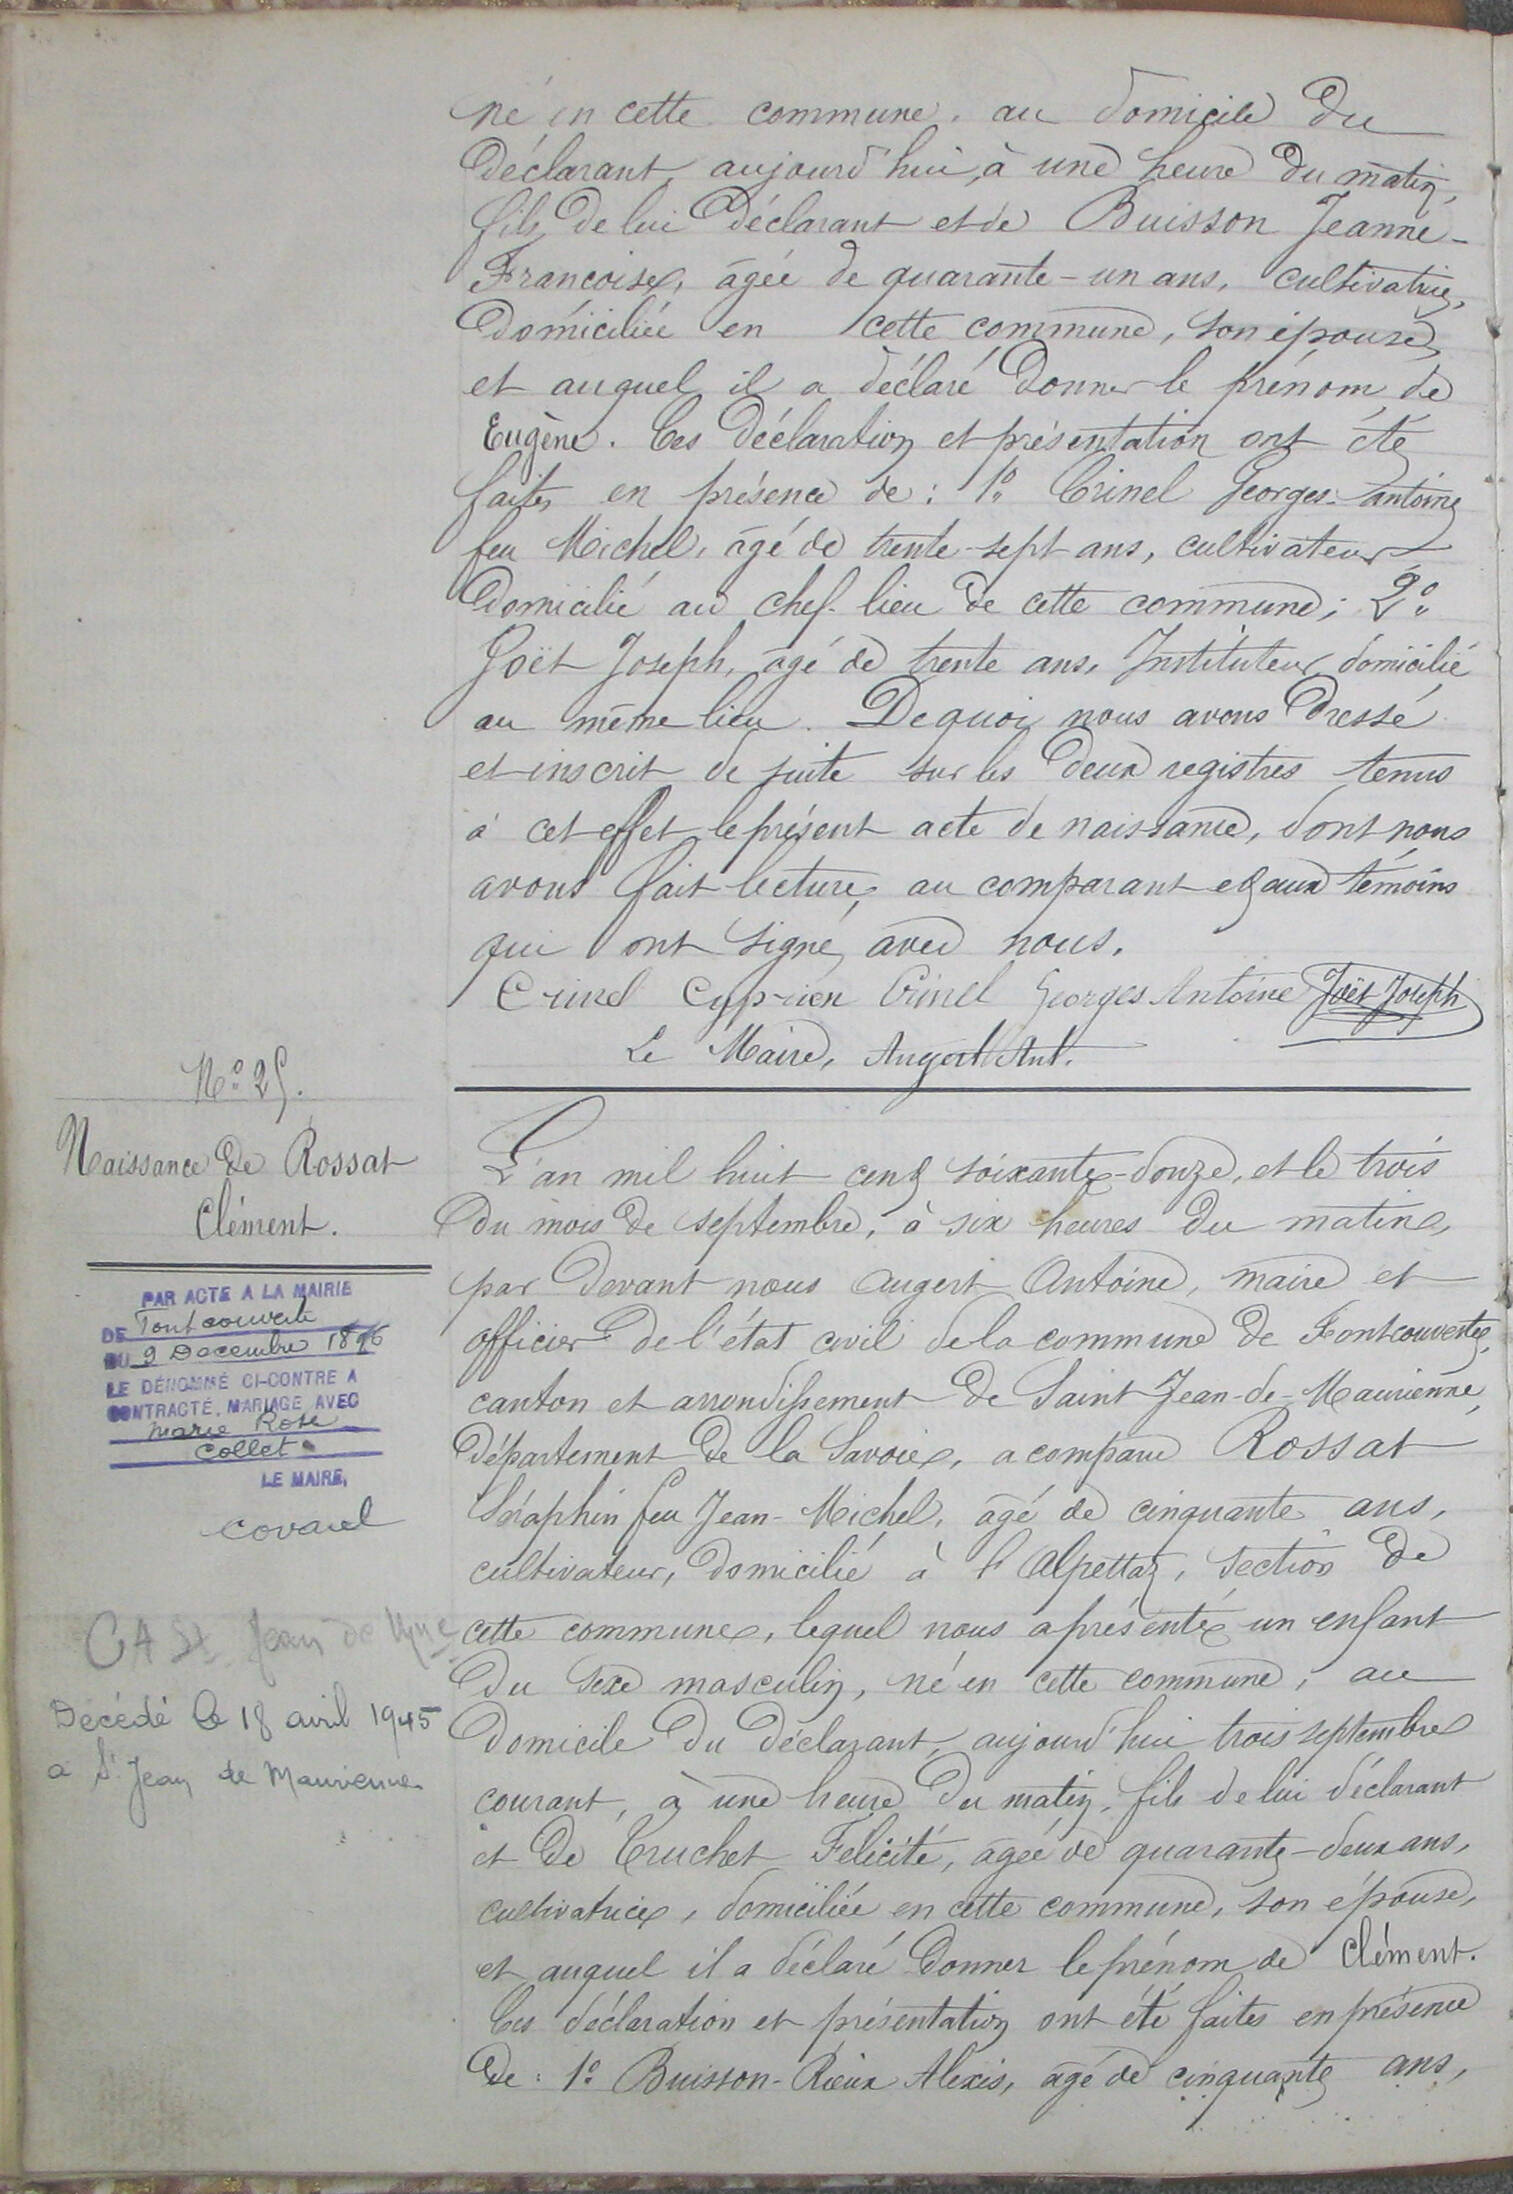 né en cette commune, au domicile du
déclarant, aujourd'hui, à une heure du matin,
fils de lui déclarant et de Buisson Jeanne-
Françoise, âgée de quarante-un ans, cultivatrice,
domiciliée en cette commune, son épouse,
et auquel il a déclaré donner le prénom de
Eugène. Ces déclaration et présentation ont été
faites en présence de : 1° Crinel Georges-Antoine
feu Michel, âgé de trente-sept ans, cultivateur
domicilié au chef-lieu de cette commune; 2°
Joët Joseph, âgé de trente ans, Instituteur, domicilié
au même lieu. De quoi nous avons dressé
et inscrit de suite sur les deux registres tenus
à cet effet le présent acte de naissance, dont nous
avons fait lecture, au comparant et aux témoins
qui ont signé avec nous.
Crinel Cyprien Crinel Georges Antoine Joët Joseph
Le Maire, Augert Ant.
N° 25.
Naissance de Rossat
Clément.
PAR ACTE A LA MAIRIE
DE Fontcouverte
DU 9 Decembre 1896
LE DÉNOMMÉ CI-CONTRE A
CONTRACTÉ, MARIAGE AVEC
Marie Rose
Collet
LE MAIRE,
Covarel
CA St. Jean de Mne
Décédé le 18 avril 1945
a St Jean de Maurienne
L'an mil huit cent soixante-douze, et le trois
du mois de septembre, à six heures du matin,
par devant nous Augert Antoine, maire et
officier de l'état civil de la commune de Fontcouverte,
canton et arrondissement de Saint Jean-de-Maurienne,
département de la Savoie, a comparu Rossat
Séraphin feu Jean-Michel, âgé de cinquante ans,
cultivateur, domicilié à l'Alpettaz, section de
cette commune, lequel nous a présenté un enfant
du sexe masculin, né en cette commune, au
domicile du déclarant, aujourd'hui trois septembre
courant, à une heure du matin, fils de lui déclarant
et de Truchet Félicité, âgée de quarante-deux ans,
cultivatrice, domiciliée en cette commune, son épouse,
et auquel il a déclaré donner le prénom de Clément.
Ces déclaration et présentation ont été faites en présence
de : 1° Buisson-Rieux Alexis, âgé de cinquante ans,